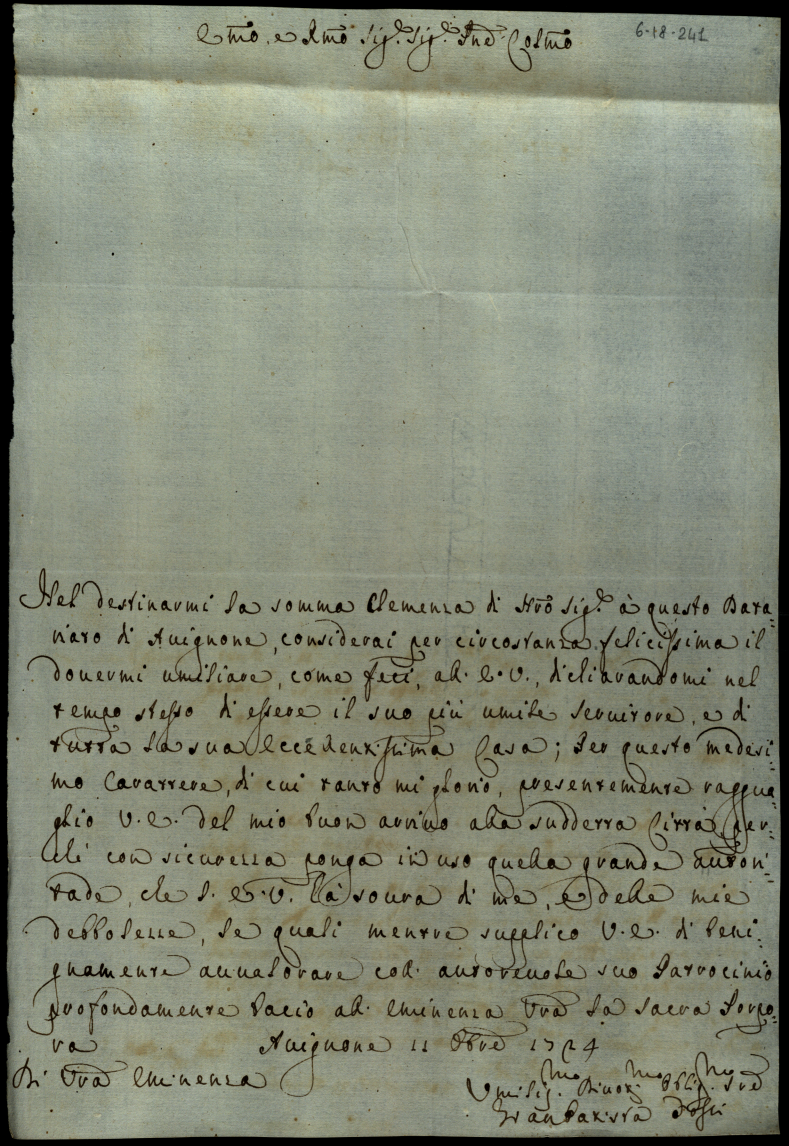 Emo. e Rmo Sig.r Sig.r Pne Colmo
6-18-241
Nel destinarmi la somma Clemenza di Nrõ Sig.r à questo Bara-
riato di Auignone, considerai per circostanza felicissima il
douermi umiliare, come feci, all' E. V., dichiarandomi nel
tempo stesso di essere il suo più umile seruitore, e di
tutta la sua Eccellentissima Casa; Per questo medesi-
mo Carattere, di cui tanto mi glorio, presentemente raggua-
glio V. E. del mio buon arriuo alla sudderta Città, per-
chè con sicurezza ponga in uso quella grande autori-
tade, che l' E. V. hà soura di me, e delle mie
debbolezze, le quali mentre supplico V. E. di beni-
gnamente auualorare coll' autoreuole suo Patrocinio
profondamente bacio all' Eminenza Vrã la sacra Porpo-
ra Auignone 11 Obre 1724
Di Vrã Eminenza
Vmiliss.mo Diuot.mo Obblig.mo Sre